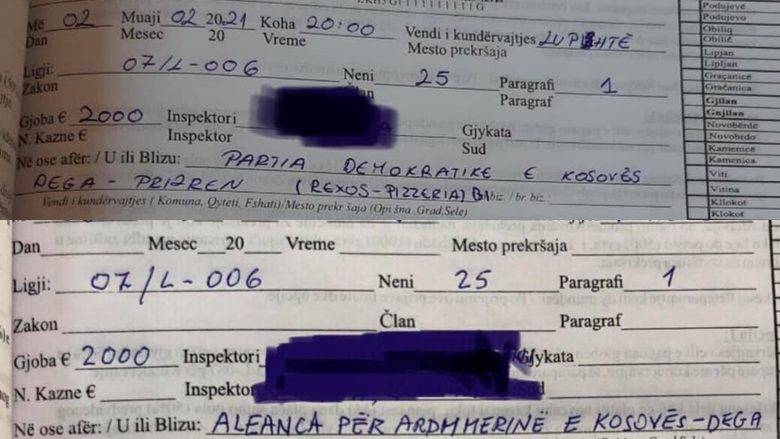 Më 02 Muaji 02 2021 Koha 20:00
Dan Mesec 20 Vreme
Vendi i kundërvajtjes LUPISHTË
Mesto prekršaja
Ligji: 07/L-006 Neni 25 Paragrafi 1
Zakon Član Paragraf
Gjoba € 2000 Inspektori Gjykata
N. Kazne € Inspektor Sud
Në ose afër: / U ili Blizu: PARTIA DEMOKRATIKE E KOSOVËS
DEGA - PRIZREN (REXOS-PIZZERIA) biz. / br. biz.:
Vendi i kundërvajtjes ( Komuna, Qyteti, Fshati)/Mesto prekr šaja (Opi šna ,Grad,Sele)
Podujevë
Podujevo
Obiliq
Obilić
Lipjan
Lipljan
Graçanicë
Gračanica
Gjilan
Gnjilan
Novobërdë
Novobrdo
Kamenicë
Kamenica
Viti
Vitina
Kllokot
Klokot
Dan Mesec 20 Vreme Mesto prekršaja
Ligji: 07/L-006 Neni 25 Paragrafi 1
Zakon Član Paragraf
Gjoba € 2000 Inspektori Gjykata
N. Kazne € Inspektor
Në ose afër: / U ili Blizu: ALEANCA PËR ARDHMERINË E KOSOVËS-DEGA